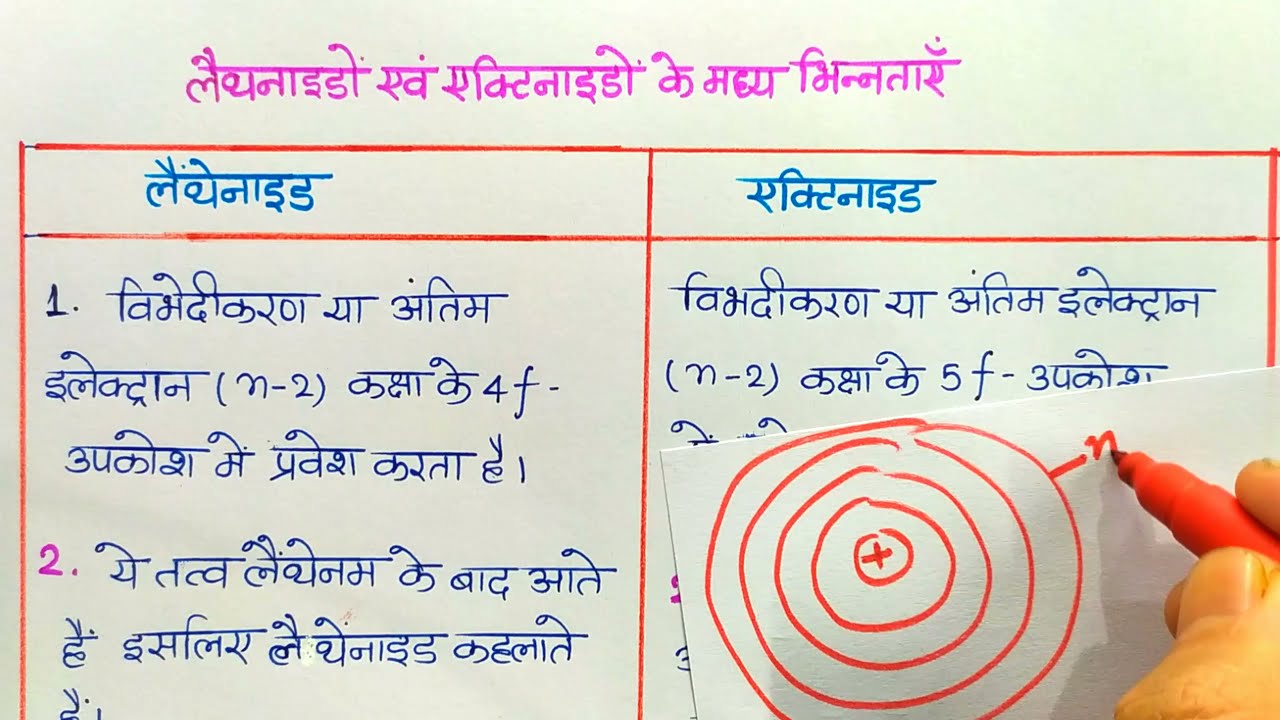 लैथनाइडों एवं एक्टिनाइडों के मध्य भिन्नताएँ
लैंथेनाइड
एक्टिनाइड
1. विभेदीकरण या अंतिम
इलेक्ट्रान (n-2) कक्षा के 4f-
उपकोश में प्रवेश करता है।
2. ये तत्व लैंथेनम के बाद आते
हैं इसलिए लैथेंनाइड कहलाते
हैं।
विभदीकरण या अंतिम इलेक्ट्रान
(n-2) कक्षा के 5f-उपकोश
+
n